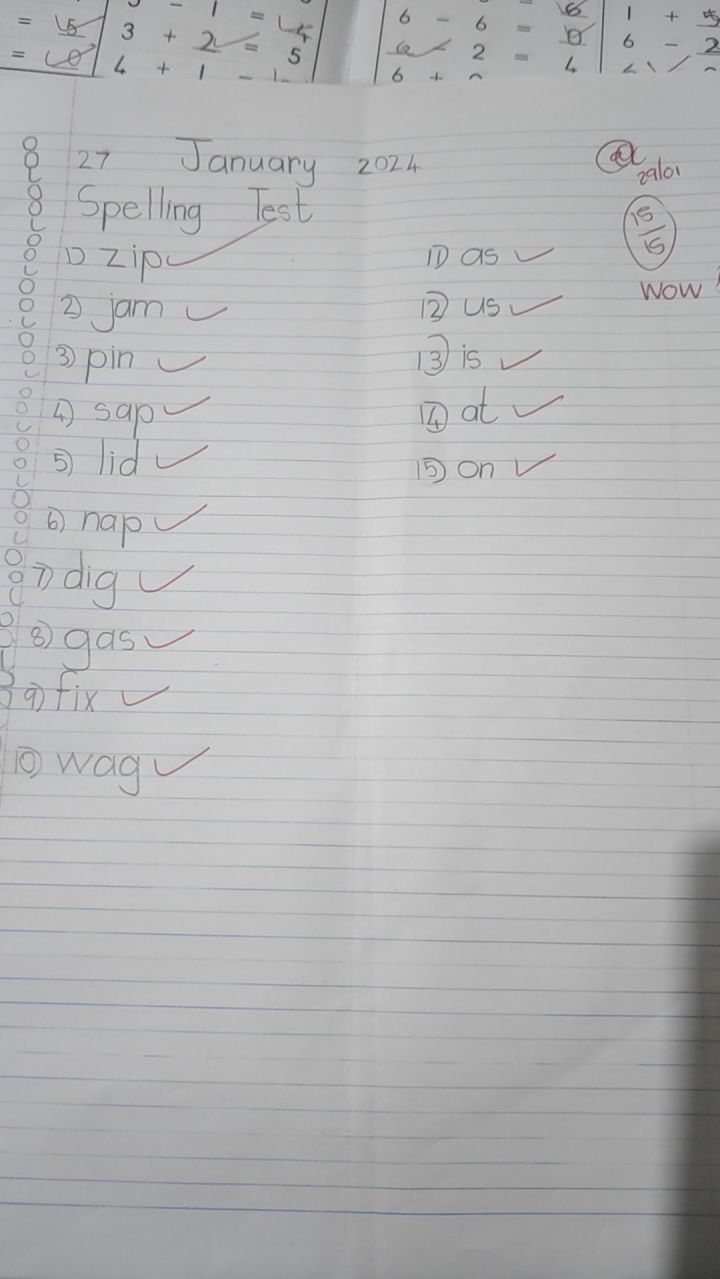 = 5
= 0
3 + 2 = 5
4 + 1 -
- 1 = 4
6 - 6 = 0
6 - 2 = 4
6 +
1 + 5
6 - 2
27 January 2024
29/01
Spelling Test
15/15
wow !
1) zip
2) jam
3) pin
4) sap
5) lid
6) nap
7) dig
8) gas
9) fix
10) wag
11) as
12) us
13) is
14) at
15) on